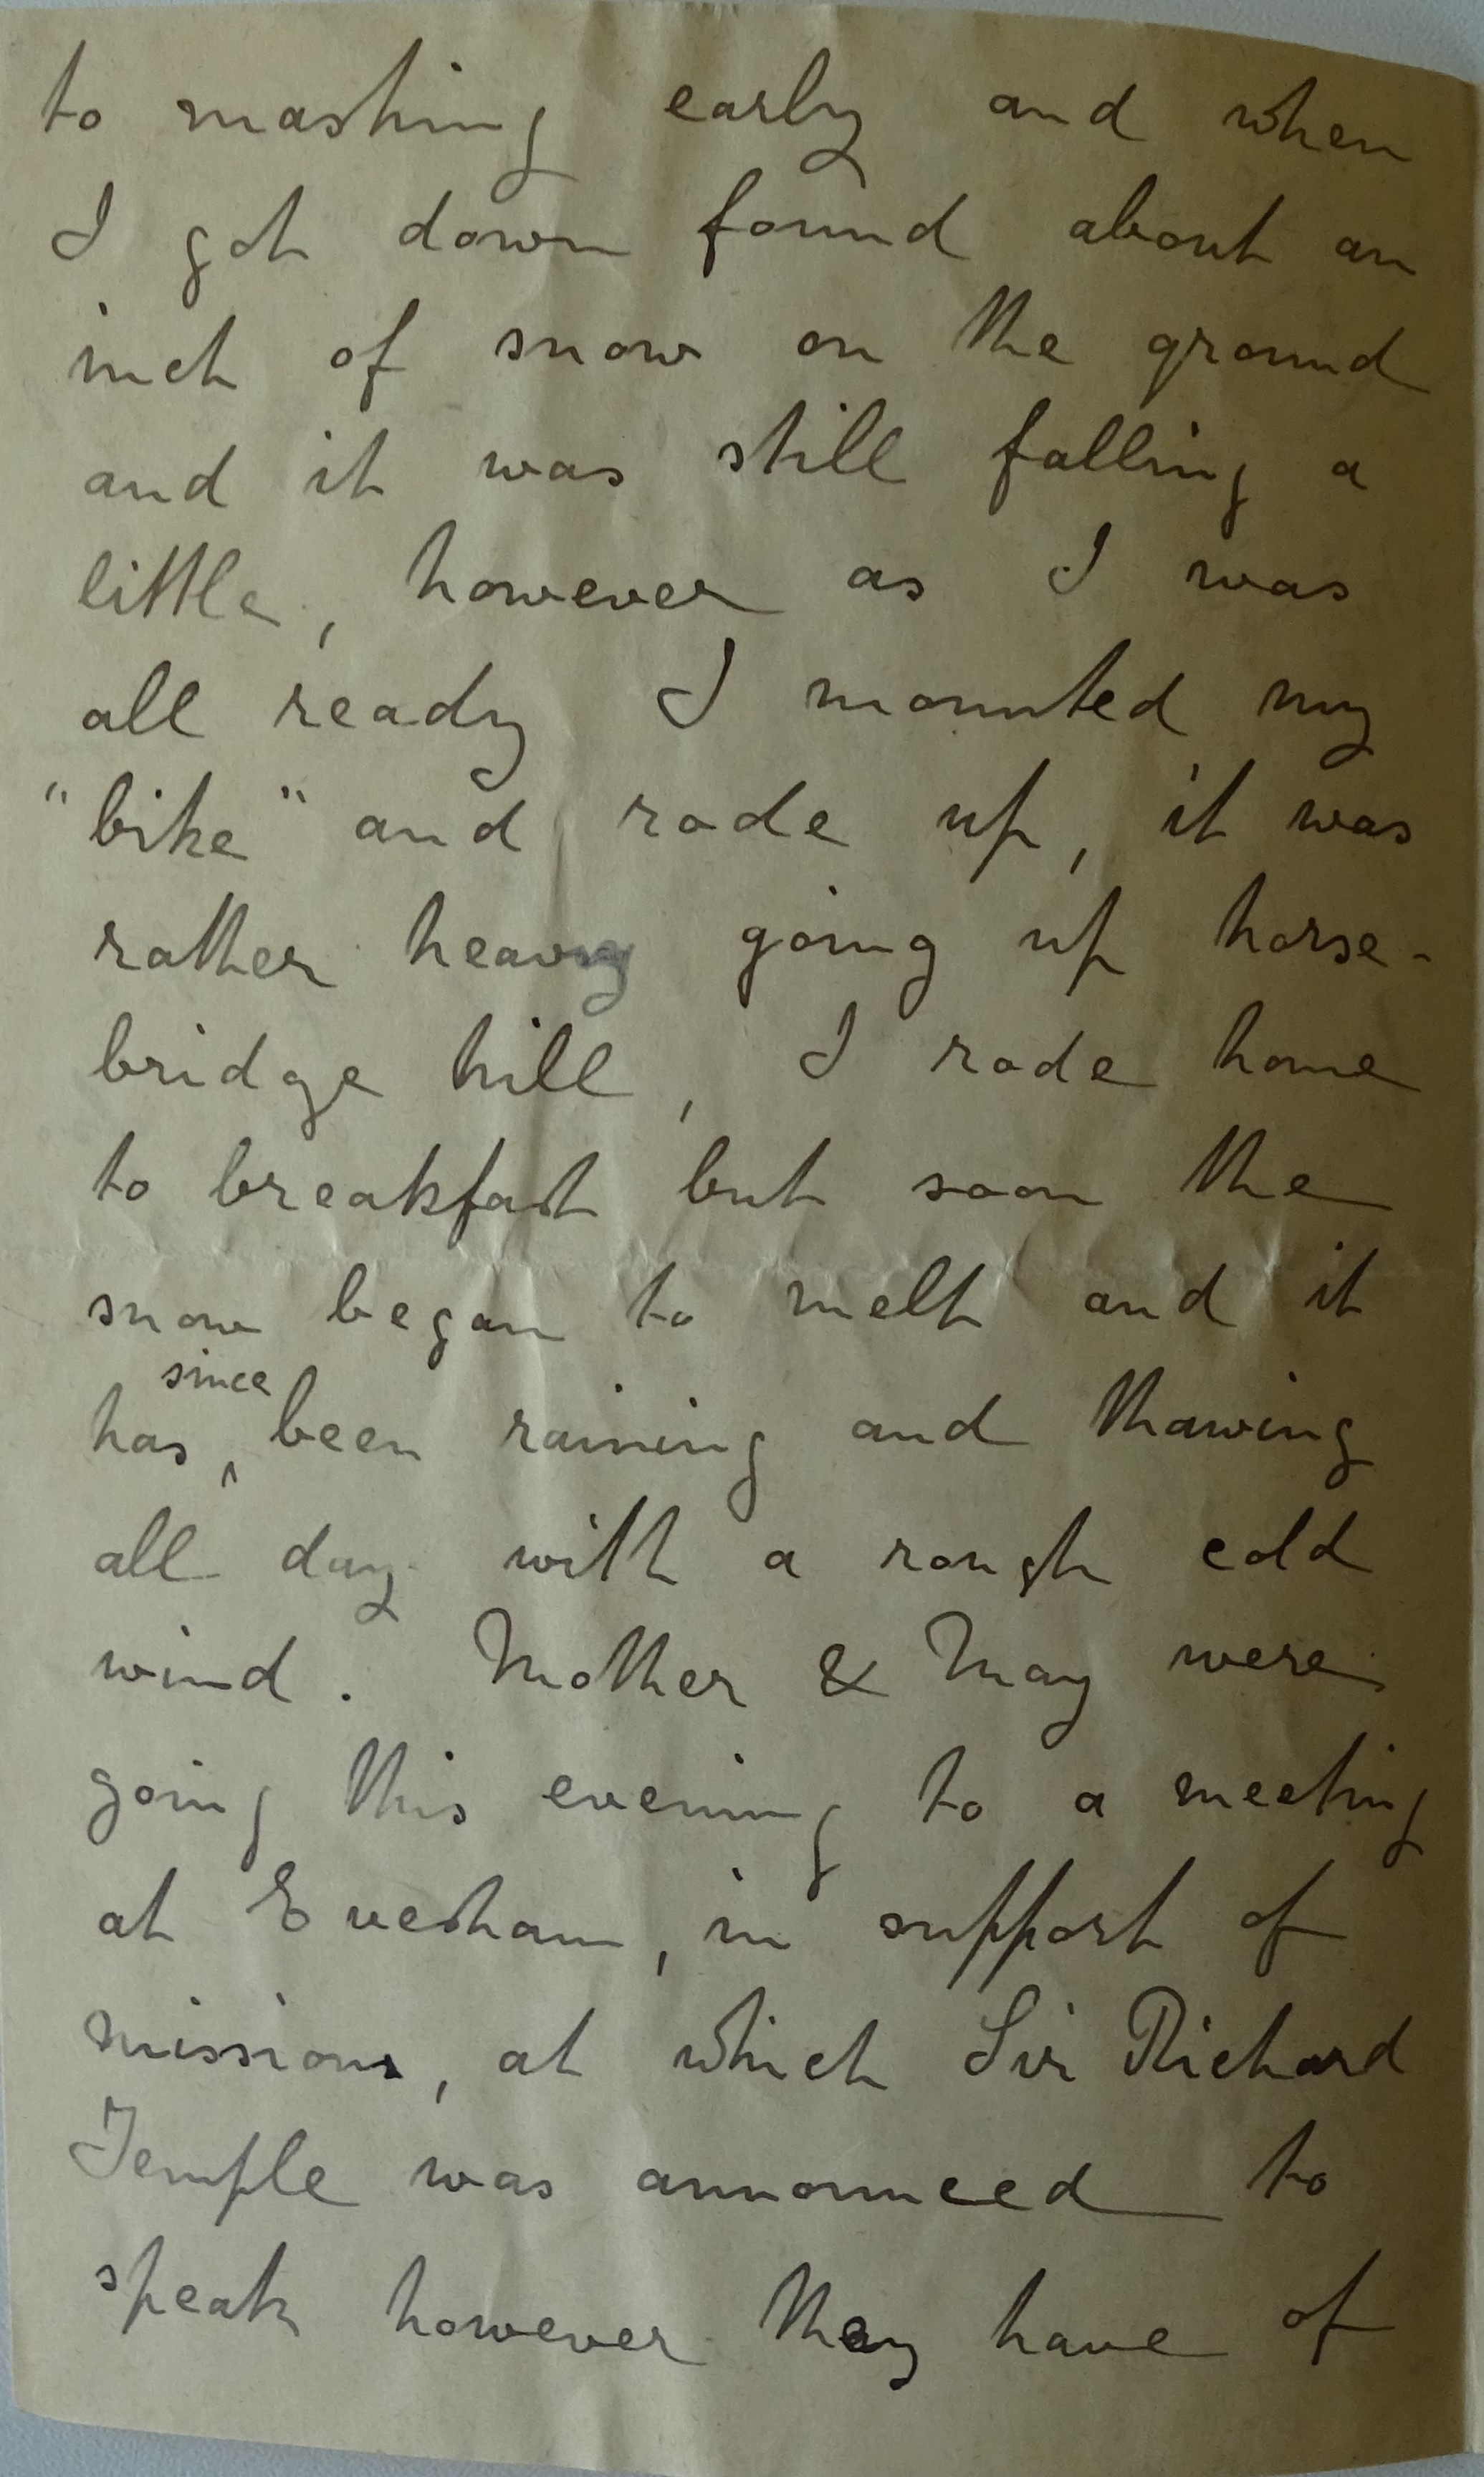 to mashing early and when
I got down found about an
inch of snow on the ground
and it was still falling a
little, however as I was
all ready I mounted my
"bike" and rode up, it was
rather heavy going up horse-
bridge hill, I rode home
to breakfast but soon the
snow began to melt and it
has ^since been raining and thawing
all day with a rough cold
wind. Mother & May were
going this evening to a meeting
at Evesham, in support of
missions, at which Sir Richard
Temple was announced to
speak however they have of